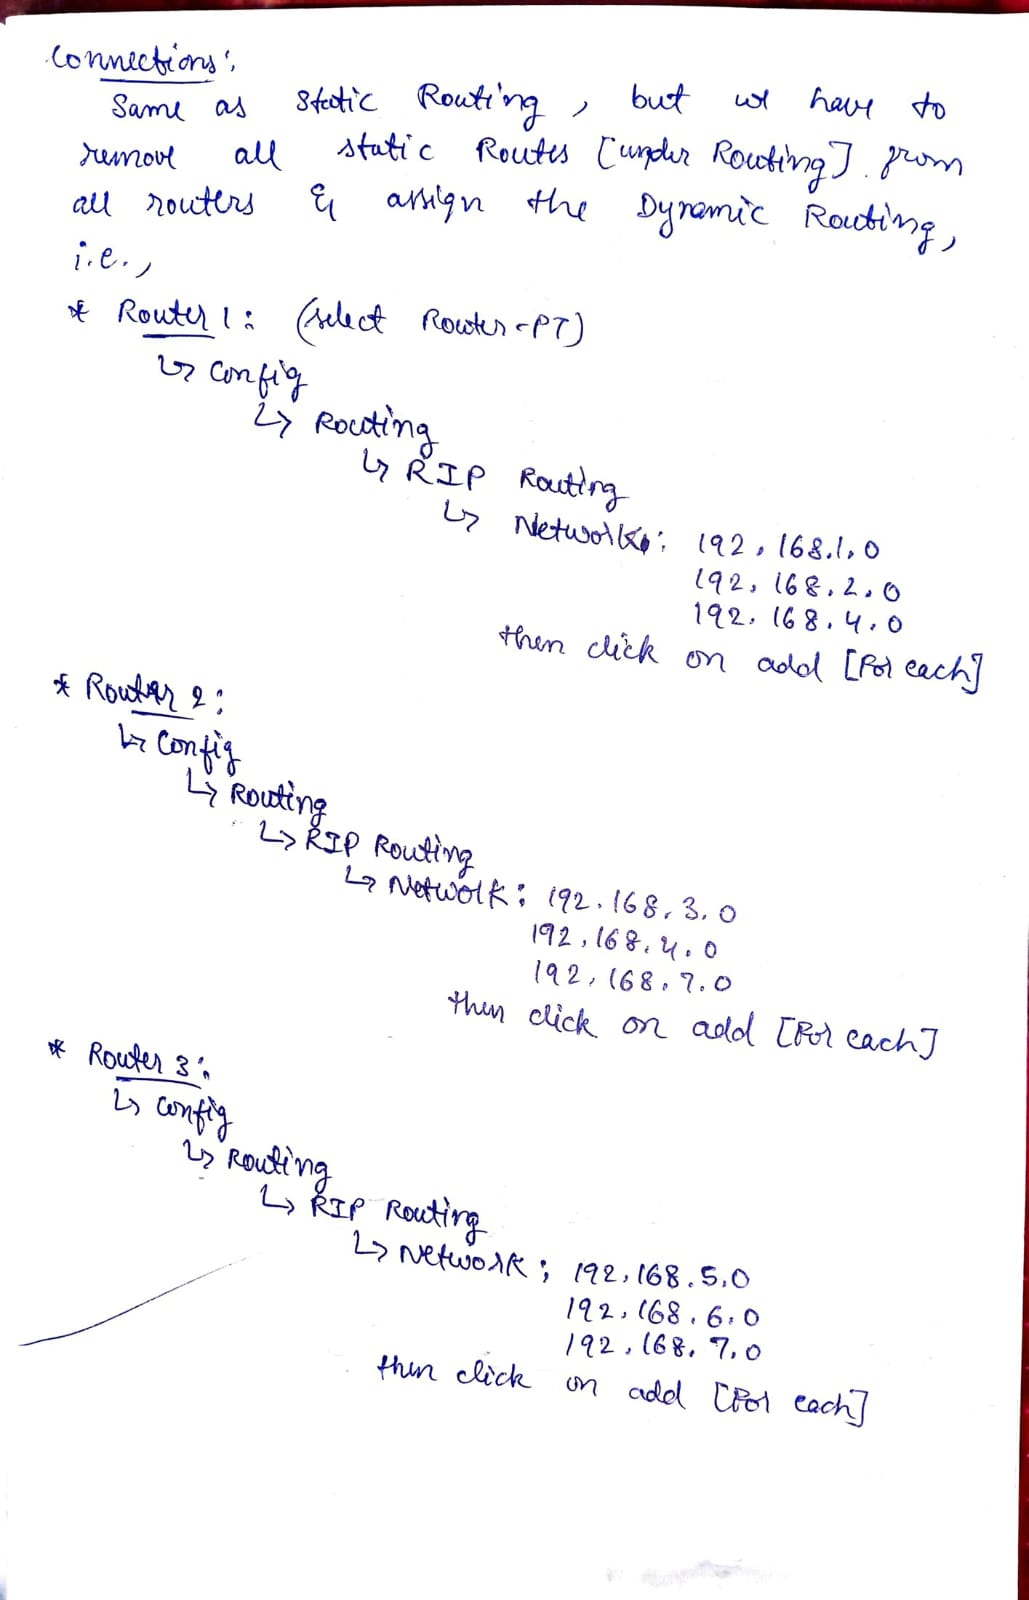 Connections:
Same as Static Routing, but we have to
remove all static Routes [under Routing] from
all routers & assign the Dynamic Routing,
i.e.,
* Router 1: (select Router-PT)
↳ Config
↳ Routing
↳ RIP Routing
↳ Networks: 192.168.1.0
192.168.2.0
192.168.4.0
then click on add [For each]
* Router 2:
↳ Config
↳ Routing
↳ RIP Routing
↳ Network: 192.168.3.0
192.168.4.0
192.168.7.0
then click on add [For each]
* Router 3:
↳ Config
↳ Routing
↳ RIP Routing
↳ Network: 192.168.5.0
192.168.6.0
192.168.7.0
then click on add [For each]